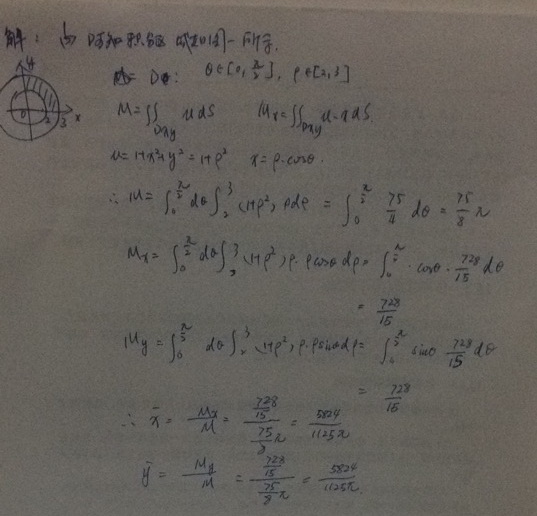 解：由题知积分区域如图一所示.
y
0 2 3 x
D: θ∈[0, π/2], ρ∈[2,3]
M=∬Dxy u dS   Mx=∬Dxy u·x dS
u=1+x²+y²=1+ρ²   x=ρ·cosθ.
∴ M=∫₀^(π/2) dθ ∫₂³ (1+ρ²)·ρdρ = ∫₀^(π/2) 75/4 dθ = 75/8 π
Mx=∫₀^(π/2) dθ ∫₂³ (1+ρ²)ρ·ρcosθ dρ = ∫₀^(π/2) ·cosθ·728/15 dθ
= 728/15
My=∫₀^(π/2) dθ ∫₂³ (1+ρ²)ρ·ρsinθ dρ = ∫₀^(π/2) sinθ 728/15 dθ
= 728/15
∴ x̄ = Mx/M = (728/15)/(75/8 π) = 5824/1125π
ȳ = My/M = (728/15)/(75/8 π) = 5824/1125π.